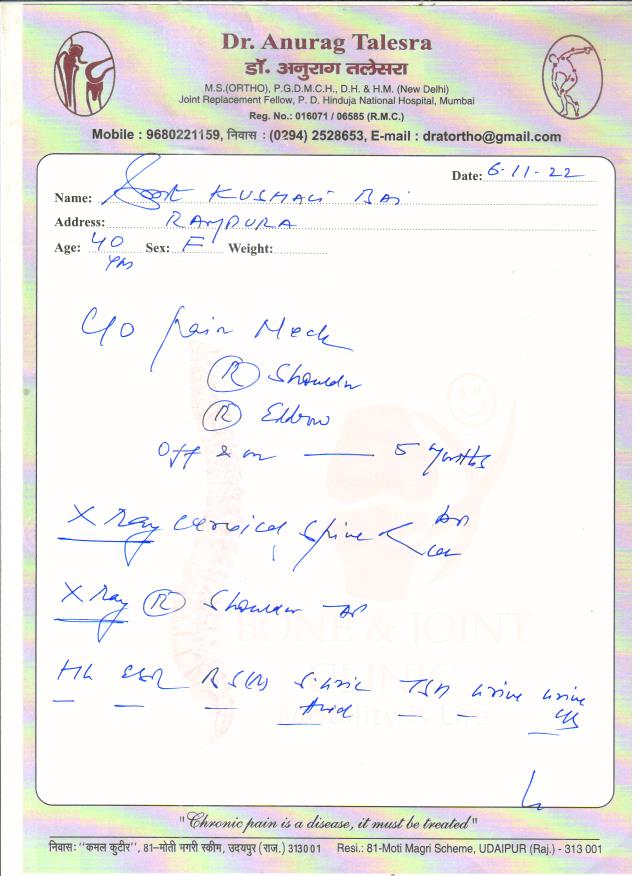 Dr. Anurag Talesra
डॉ. अनुराग तलेसरा
M.S.(ORTHO), P.G.D.M.C.H., D.H. & H.M. (New Delhi)
Joint Replacement Fellow, P. D. Hinduja National Hospital, Mumbai
Reg. No.: 016071 / 06585 (R.M.C.)
Mobile : 9680221159, निवास : (0294) 2528653, E-mail : dratortho@gmail.com
Date: 6-11-22
Name: KUSHALI BAI
Address: RAMPURA
Age: 40 yrs Sex: F Weight:
C/o pain Neck
(R) Shoulder
(R) Elbow
Off & on — 5 months
X Ray cervical spine < AP
Lat
X Ray (R) Shoulder AP
Hb ESR B S(R) S. uric Acid TSH urine urine
BONE & JOINT
CLINIC
Mobility is Life
"Chronic pain is a disease, it must be treated"
निवास: "कमल कुटीर", 81-मोती मगरी स्कीम, उदयपुर (राज.) 313001 Resi.: 81-Moti Magri Scheme, UDAIPUR (Raj.) - 313 001